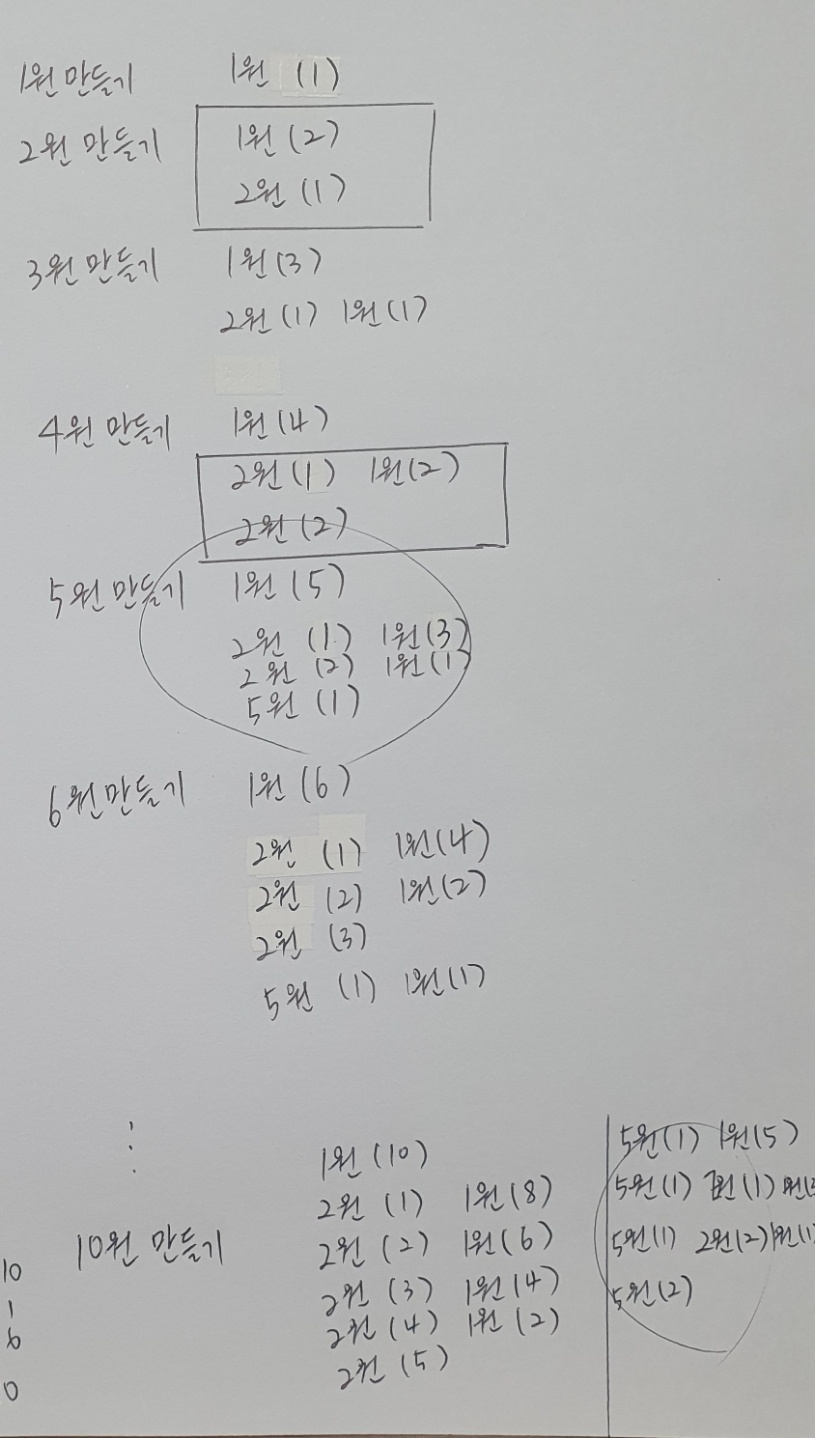 1원 만들기 1원 (1)
2원 만들기 1원 (2)
2원 (1)
3원 만들기 1원 (3)
2원 (1) 1원 (1)
4원 만들기 1원 (4)
2원 (1) 1원 (2)
2원 (2)
5원 만들기 1원 (5)
2원 (1) 1원 (3)
2원 (2) 1원 (1)
5원 (1)
6원 만들기 1원 (6)
2원 (1) 1원 (4)
2원 (2) 1원 (2)
2원 (3)
5원 (1) 1원 (1)
⋮
10원 만들기
1원 (10)
2원 (1) 1원 (8)
2원 (2) 1원 (6)
2원 (3) 1원 (4)
2원 (4) 1원 (2)
2원 (5)
5원 (1) 1원 (5)
5원 (1) 2원 (1)
5원 (1) 2원 (2) 1원 (1)
5원 (2)
10
1
0